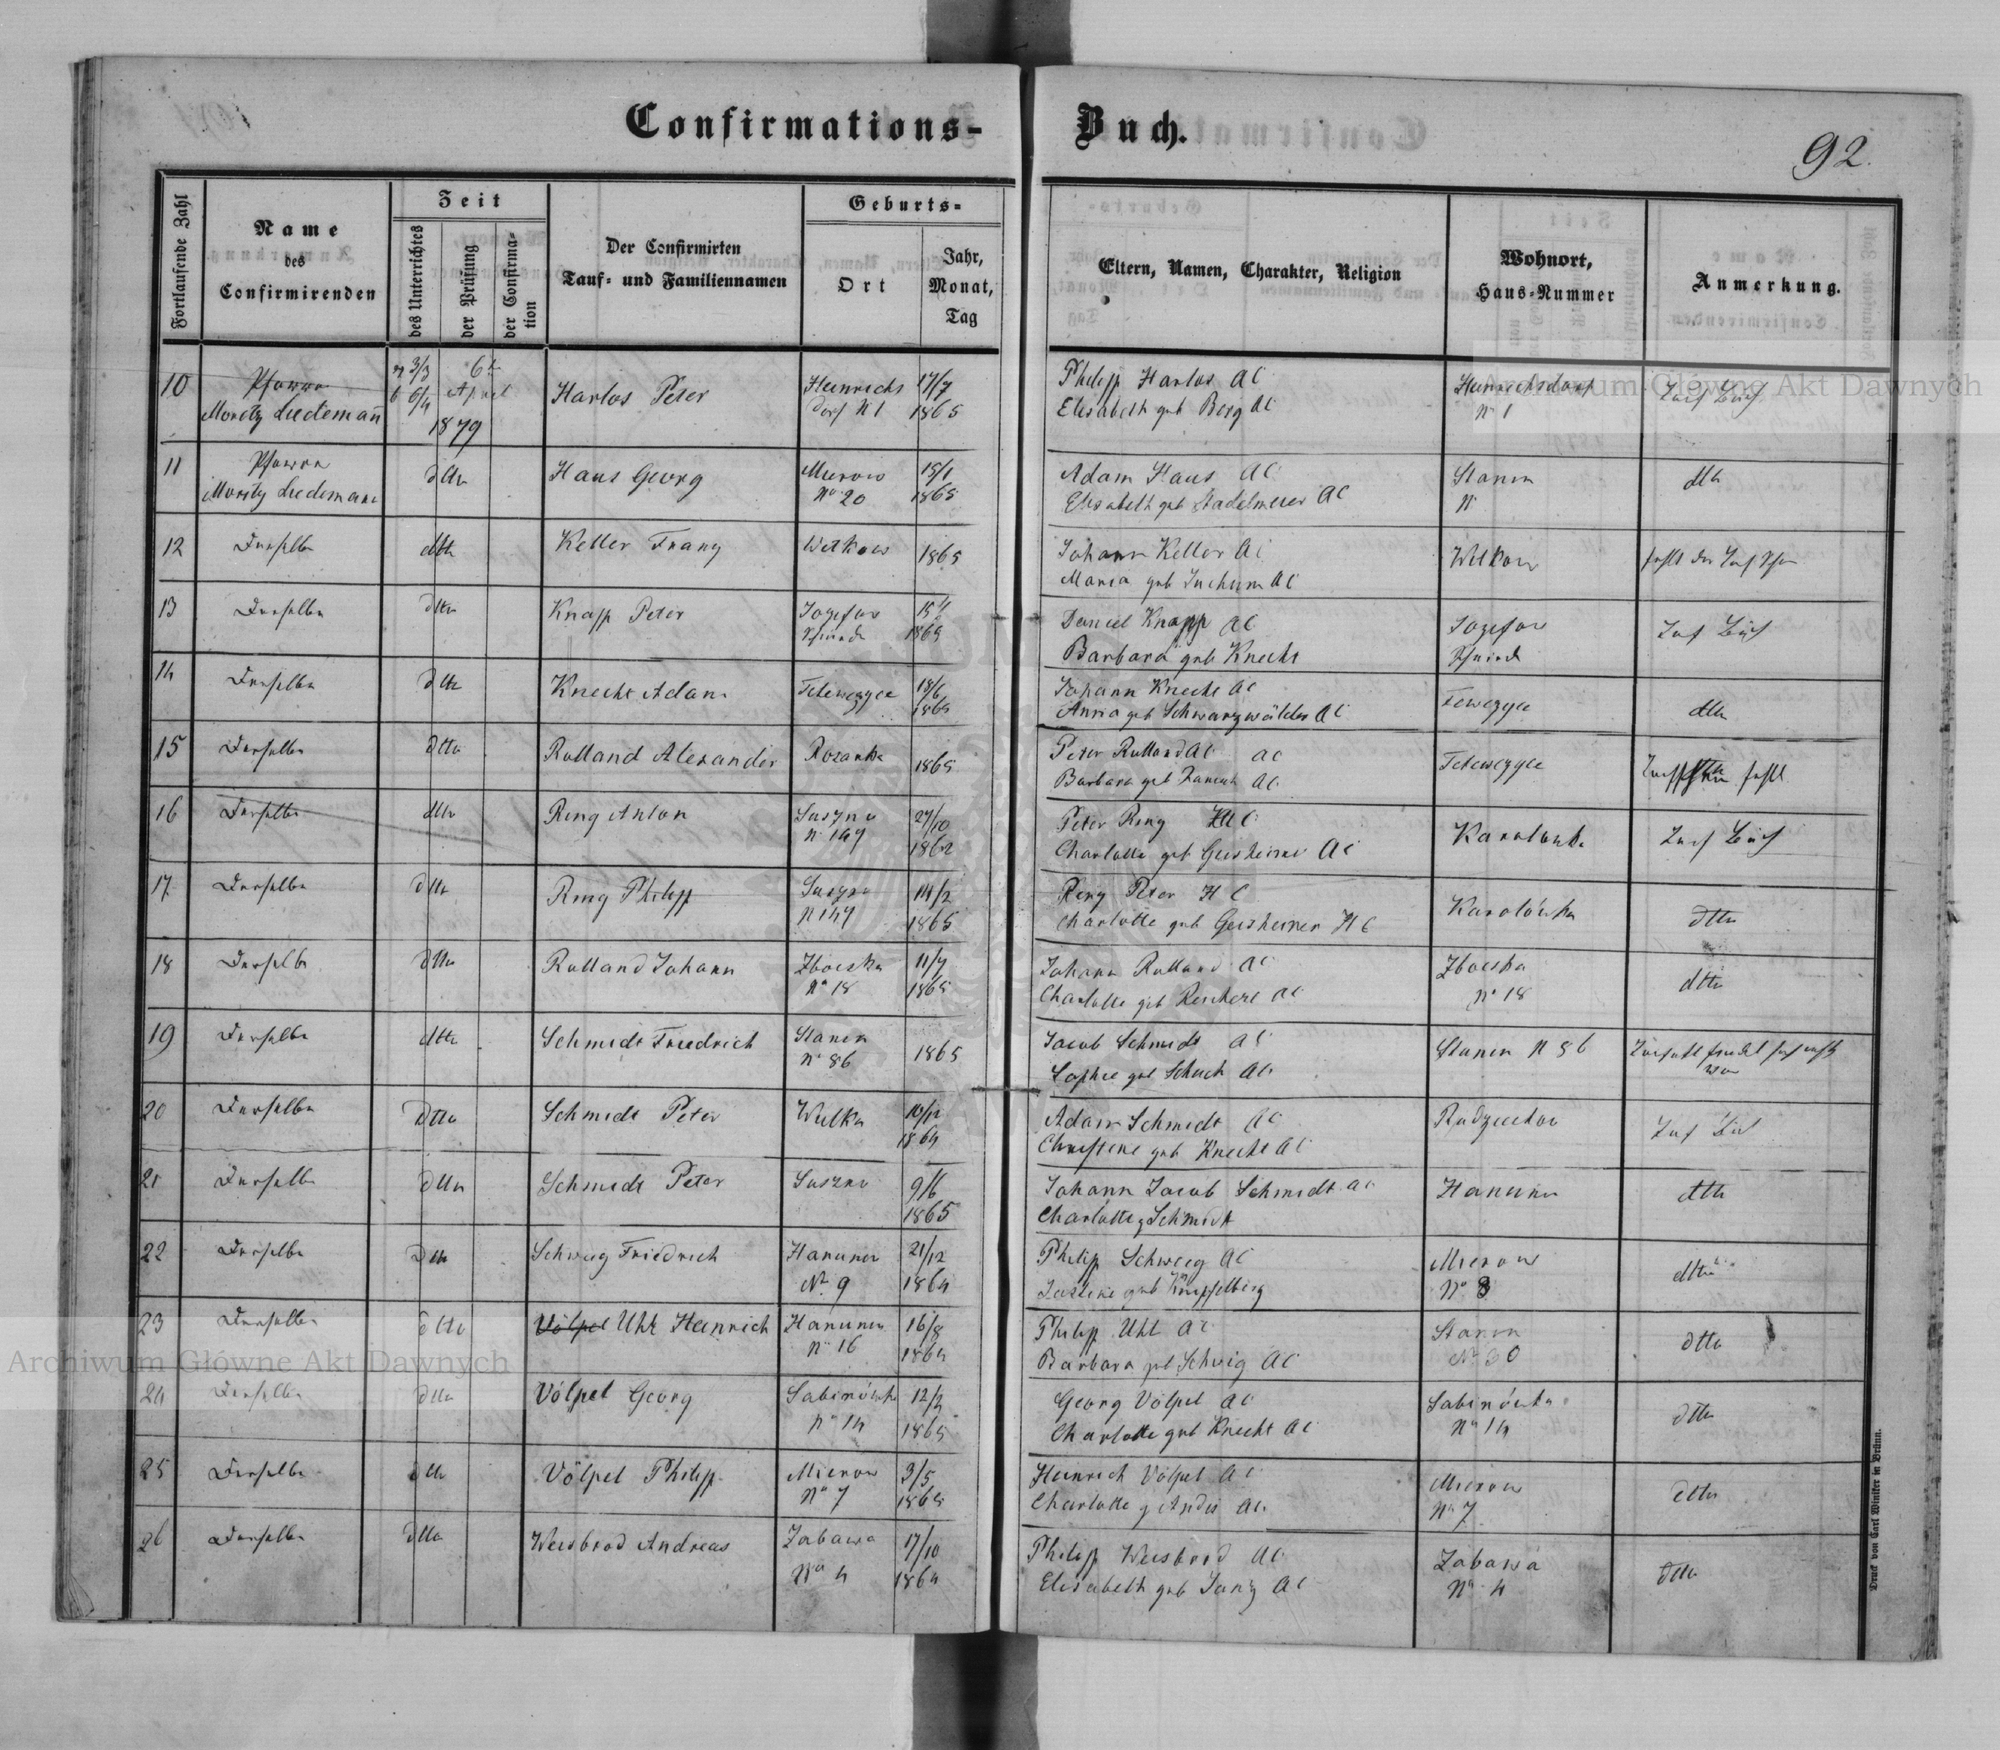 Confirmations-Buch.
92.
Fortlaufende Zahl
Name des Confirmirenden
Zeit
des Unterrichtes
der Prüfung
der Confirmation
Der Confirmirten Tauf- und Familiennamen
Geburts-
Ort
Jahr, Monat, Tag
Eltern, Namen, Charakter, Religion
Wohnort, Haus-Nummer
Anmerkung.
10 Pfarrer Moritz Luedemañ 3/3 6/4 6t April 1879 Harlos Peter Heinrichsdorf N 1 17/7 1865 Philipp Harlos AC Elisabeth geb Berg AC Heinrichsdorf No 1
11 Pfarrer Moritz Luedemann dtto Haus Georg Mierow No 20 15/1 1865 Adam Haus AC Elisabeth geb Stadelmeier AC Stanin N dtto
12 Derselbe dtto Keller Franz Witkow 1865 Johann Keller AC Maria geb AC Witkow
13 Derselbe dtto Knapp Peter Jozefow 1865 Daniel Knapp AC Barbara geb Knecht Jozefow
14 Derselbe dtto Knecht Adam Tetewczyce 18/6 1865 Johann Knecht AC Anna geb Schwarzwälder AC dtto
15 Derselbe dtto Rulland Alexander Rozanka 1865 Peter Rulland AC AC Barbara geb AC Tetewczyce fehlt
16 Derselbe dtto Ring Anton Suszno N 147 27/10 1862 Peter Ring HC Charlotte geb Geisheimer AC Karolowka
17 Derselbe dtto Ring Philipp Suszno N 147 14/2 1865 Ring Peter HC Charlotte geb Geisheimer HC Karolówka dtto
18 Derselbe dtto Rulland Johann Zboiska No 18 11/7 1865 Johann Rulland AC Charlotte geb Reichert AC Zboiska No 18 dtto
19 Derselbe dtto Schmidt Friedrich Stanin No 86 1865 Jacob Schmidt AC Sophie geb Schuck AC Stanin N 86
20 Derselbe dtto Schmidt Peter Wulka 10/12 1864 Adam Schmidt AC Christine geb Knecht AC
21 Derselbe dtto Schmidt Peter Suszno 9/6 1865 Johann Jacob Schmidt AC Charlotte g Schmidt Hanunin dtto
22 Derselbe dtto Schweg Friedrich Hanunin No 9 21/12 1864 Philipp Schweg AC geb Knipfelberg Mierow No 8 dtto
23 Derselbe dtto Völpel Uhl Heinrich Hanunin No 16 16/8 1864 Philipp Uhl AC Barbara geb Schweig AC Stanin No 30 dtto
24 Derselbe dtto Völpel Georg Sabinówka No 14 1865 Georg Völpel AC Charlotte geb Knecht AC Sabinówka No 14 dtto
25 Derselbe dtto Völpel Philipp Mierow No 7 3/5 1865 Heinrich Völpel AC Charlotte g Andis AC Mierow No 7 dtto
26 Derselbe dtto Weisbrod Andreas Zabawa No 4 17/10 1864 Philipp Weisbrod AC Elisabeth geb Janz AC Zabawa No 4 dtto
Druck von Carl Winiker in Brünn.
Archiwum Główne Akt Dawnych
Archiwum Główne Akt Dawnych